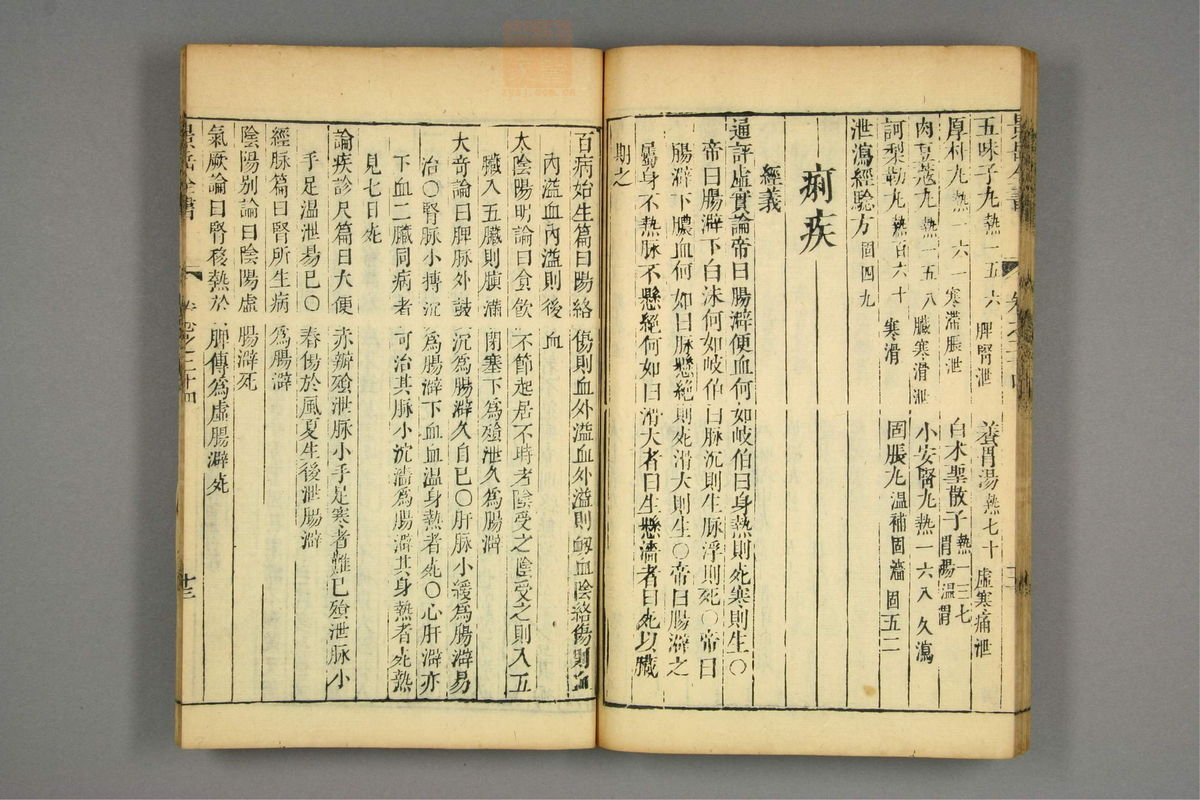 五味子丸 熱一五六 脾腎泄 養胃湯 熱七十 虛寒痛泄
原杓丸 熱一六一 寒滯脹泄 白朮聖散子 熱一三七 胃陽溫胃
肉豆蔻丸 熱一五八 臟寒滑泄 小安腎丸 熱一六八 久瀉
訶梨勒丸 熱百六十 寒滑 固腸丸 溫補固濇 固五二
泄瀉經驗方 固四九
痢疾
經義
通評虛實論帝曰腸澼便血何如岐伯曰身熱則死寒則生〇
帝曰腸澼下白沫何如岐伯曰脉沉則生脉浮則死〇帝曰
腸澼下膿血何如曰脉懸絕則死滑大則生〇帝曰腸澼之
屬身不熱脉不懸絕何如曰滑大者曰生懸濇者曰死以臟
期之
百病始生篇曰陽絡傷則血外溢血外溢則衂血陰絡傷則血
內溢血內溢則後血
太陰陽明論曰食飲不節起居不時者陰受之陰受之則入五
臟入五臟則䐜滿閉塞下爲飱泄久爲腸澼
大奇論曰脾脉外鼓沉爲腸澼久自已〇肝脉小緩爲腸澼易
治〇腎脉小搏沉爲腸澼下血血溫身熱者死〇心肝澼亦
下血二臟同病者可治其脉小沉濇爲腸澼其身熱者死熱
見七日死
論疾診尺篇曰大便赤瓣飱泄脉小手足寒者難已飱泄脉小
手足溫泄易已〇春傷於風夏生後泄腸澼
經脉篇曰腎所生病爲腸澼
陰陽别論曰陰陽虛腸澼死
氣厥論曰腎移熱於脾傳爲虛腸澼死
景岳全書 卷之二十四 十三